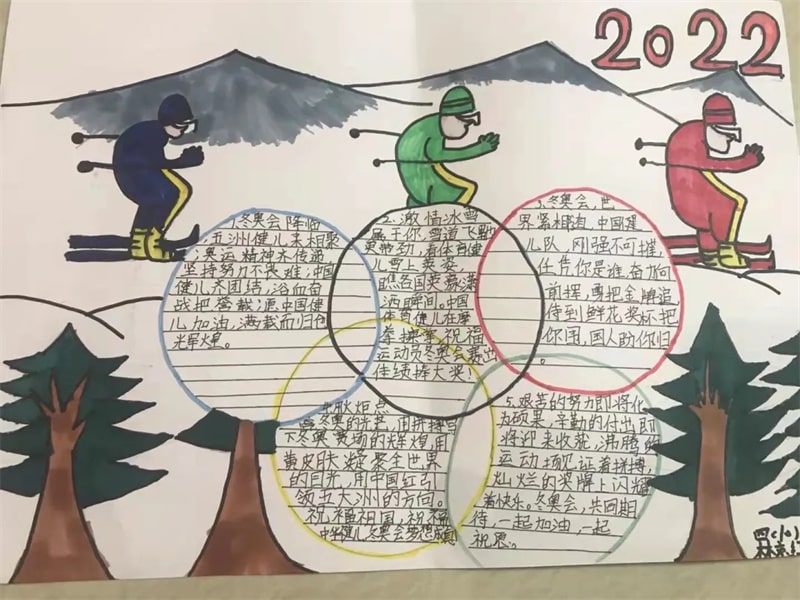 2022
1.冬奥会降临
,五洲健儿来相聚
;奥运精神永传递
坚持努力不畏难;中国
健儿齐团结,浴血奋
战把誉载;愿中国健
儿加油,满载而归
2.激情冰雪
属于你,雪道飞驰
更带劲,看体育健
儿雪上英姿,
各国英豪潇
洒瞬间。中国
体育健儿在摩
拳擦掌,祝福
运动员冬奥会赛出
佳绩捧大奖!
3.冬奥会,世
界紧相连,中国健
儿队,刚强不可摧,
任凭你是谁,奋力向
前挥,勇把金牌追,
待到鲜花奖杯把
你围,国人助你归
冬奥的光芒,用拼搏写
下冬奥赛场的辉煌,用
黄皮肤凝聚全世界
的目光,用中国红引
领五大洲的方向。
祝福祖国,祝福
中华健儿冬奥会梦想成真
5.艰苦的努力即将化
为硕果,辛勤的付出即
将迎来收获,沸腾的
运动场见证着拼搏,
灿烂的奖牌上闪耀
着快乐。冬奥会,共同期
待,一起加油,一起
祝愿。
四(小)